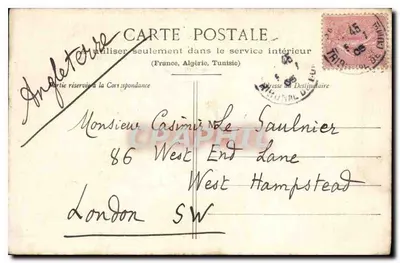 CARTE POSTALE
utiliser seulement dans le service intérieur
(France, Algérie, Tunisie)
Partie réservée à la Correspondance
Adresse du Destinataire
Angleterre
Monsieur Casimir Le Saulnier
86 West End Lane
West Hampstead
London SW